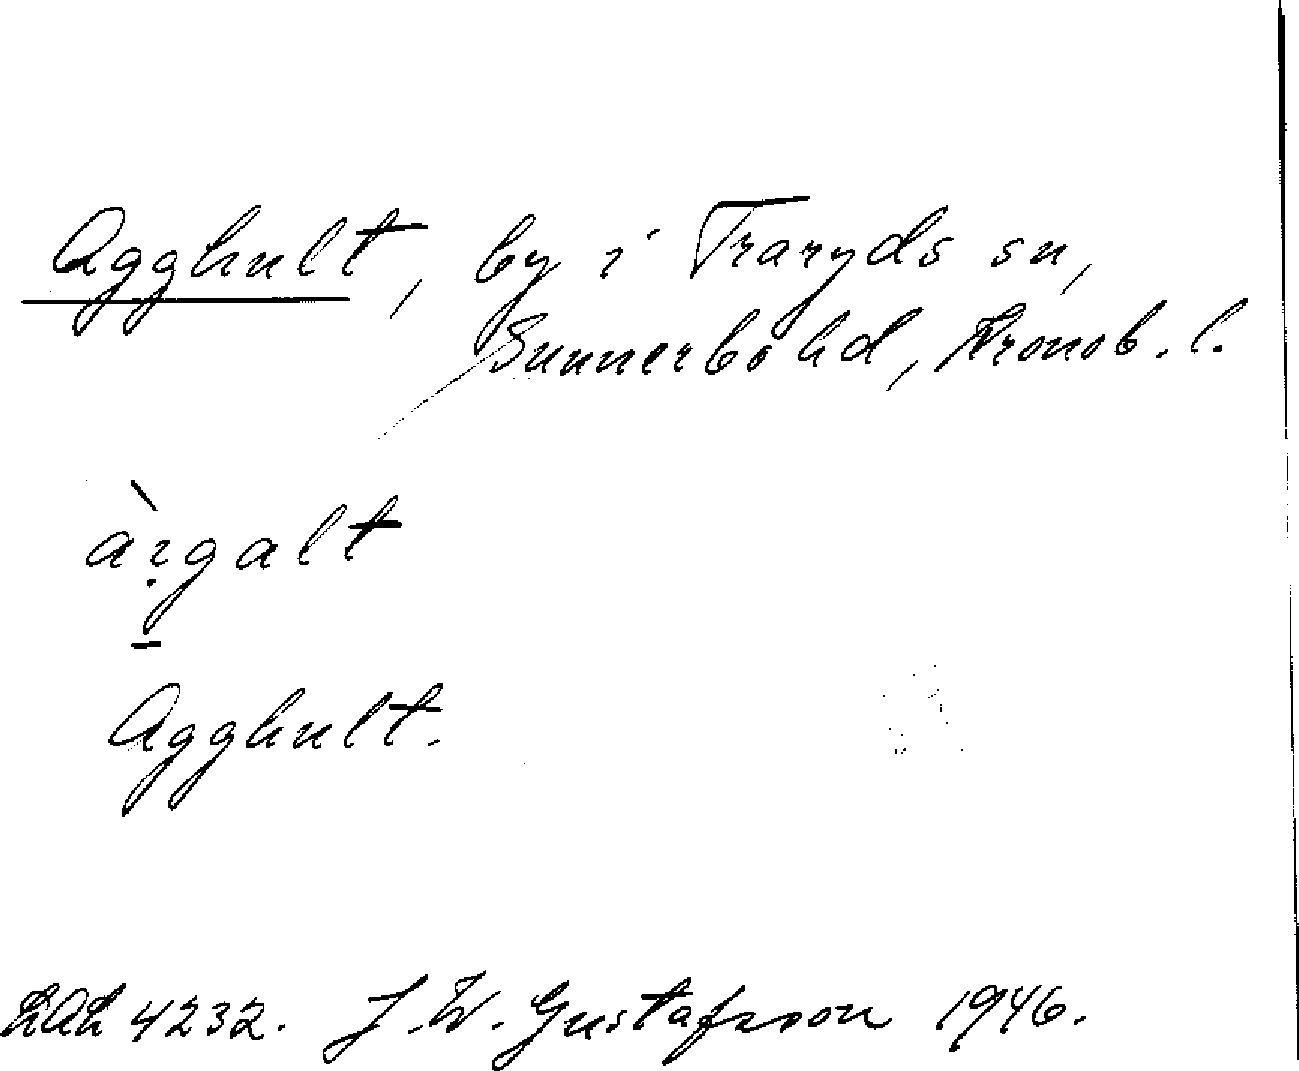 Agghult, by i Traryds sn,
Sunnerbo hd, Kronob. l.
àrgalt
Agghult.
LAL 4232. J. W. Gustafsson 1946.